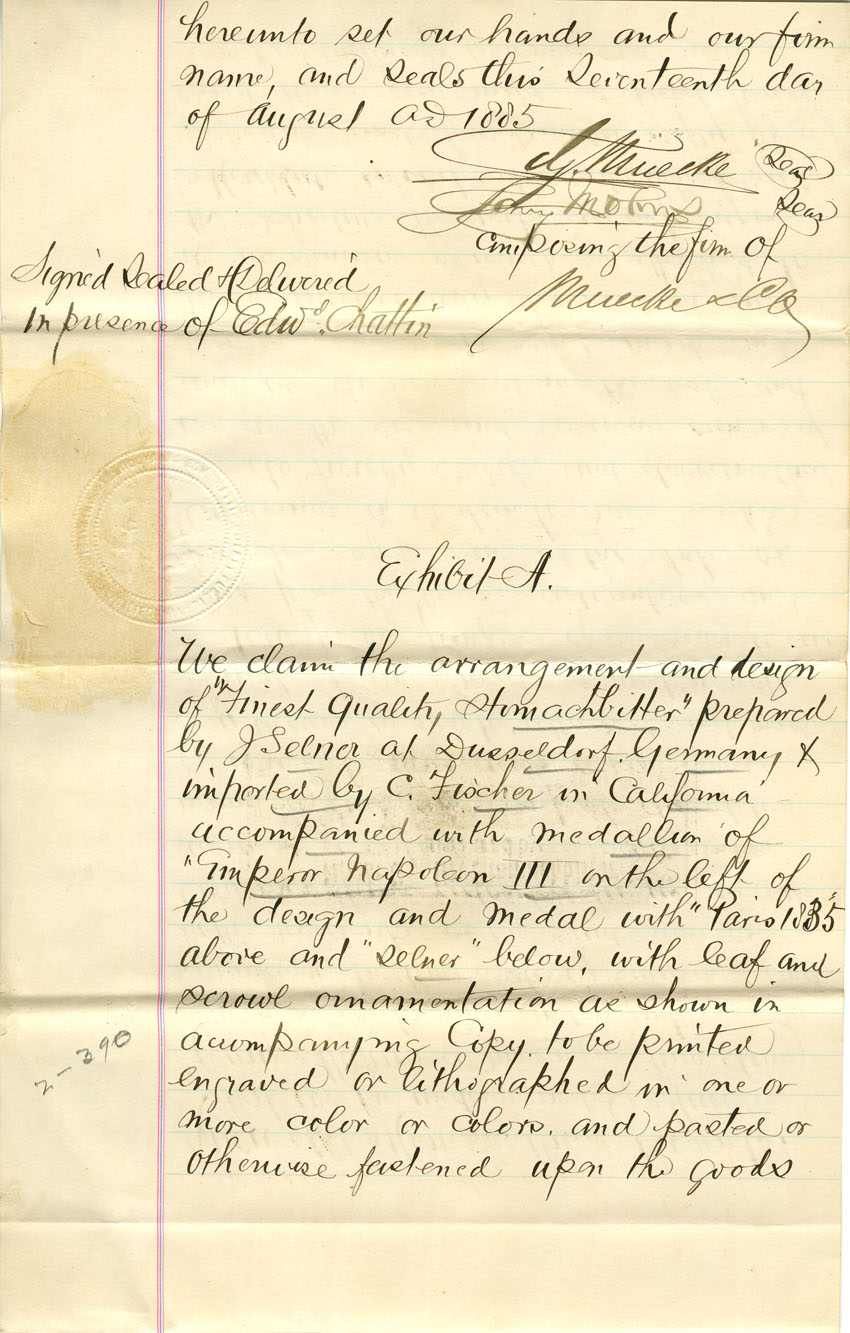 hereunto set our hands and our firm
name, and seals this Seventeenth day
of August AD 1885
Muecke Seal
John Seal
composing the firm of
Muecke & Co
Signed Sealed & Delivered
In presence of Edwd. Chattin
Exhibit A.
We claim the arrangement and design
of "Finest Quality, Stomachbitter" prepared
by J Selner at Dusseldorf. Germany &
imported by C. Fischer in California
accompanied with medallion of
"Emperor Napoleon III on the left of
the design and medal with "Paris 1835"
above and "Selner" below, with leaf and
scrowl ornamentation as shown in
acompanying Copy. to be printed
engraved or lithographed in one or
more color or colors. and pasted or
otherwise fastened upon the goods
2-390